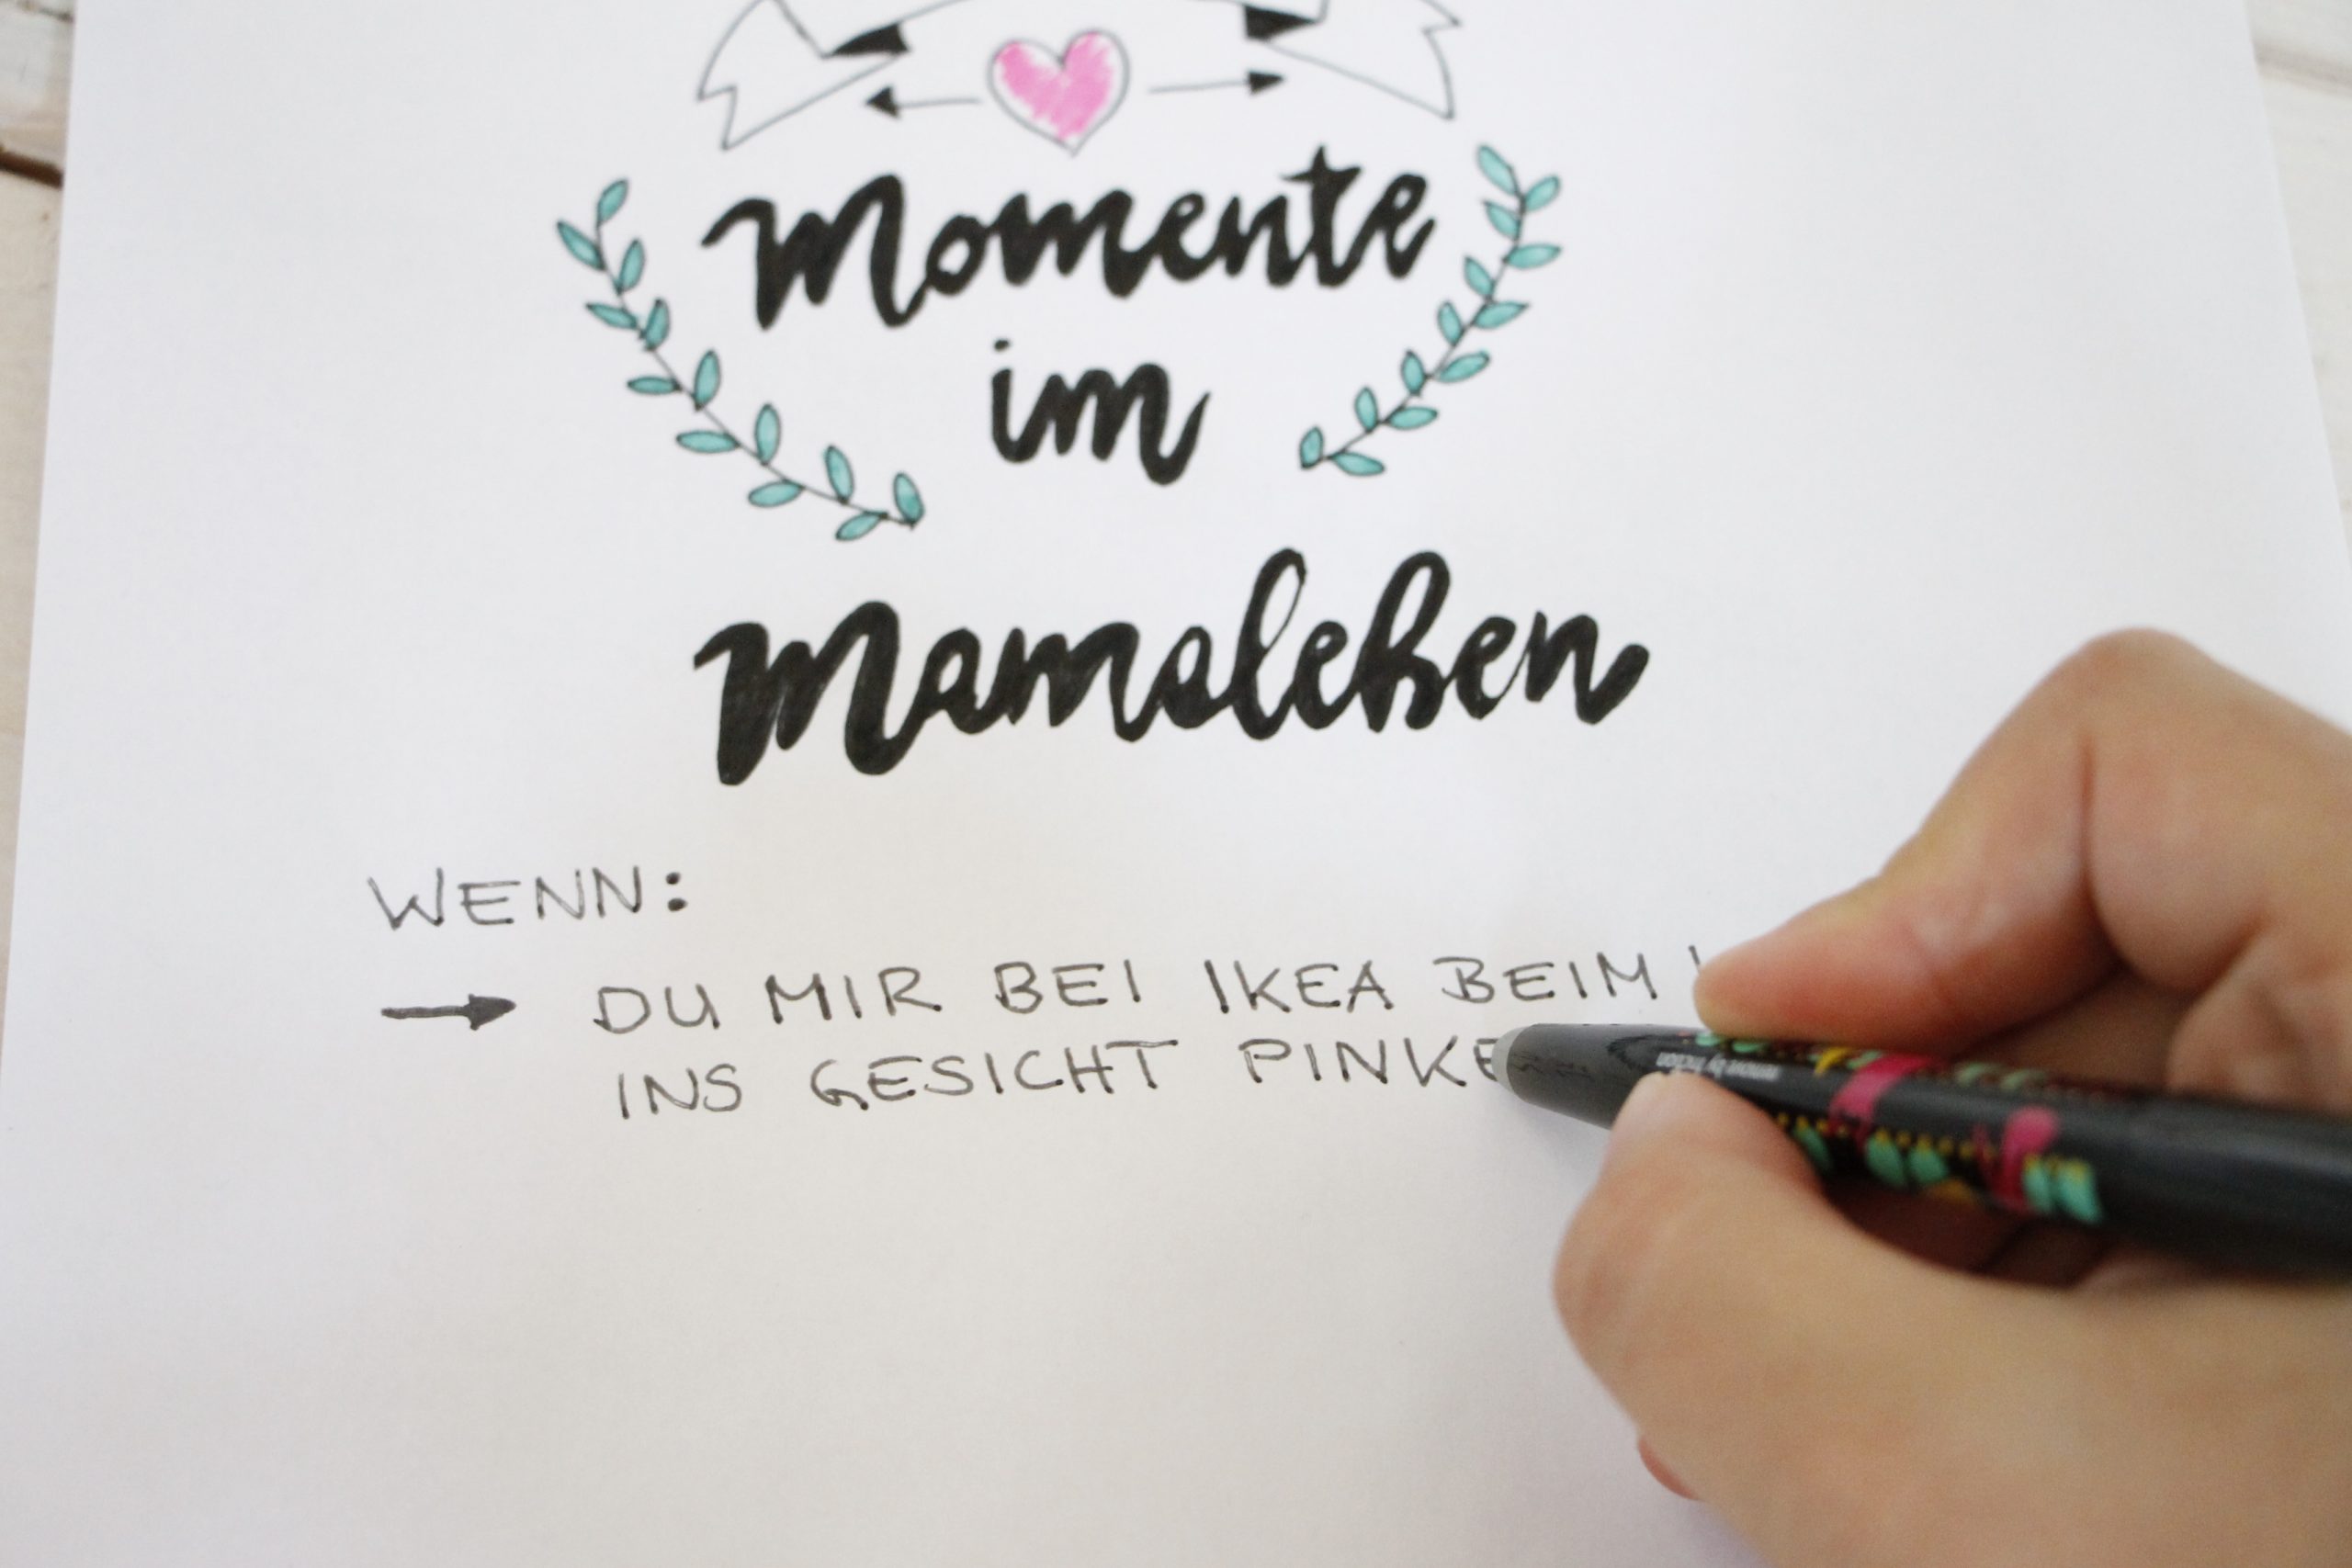 Momente
im
Mamaleben
WENN:
→ DU MIR BEI IKEA BEIM
INS GESICHT PINKE
remove by friction